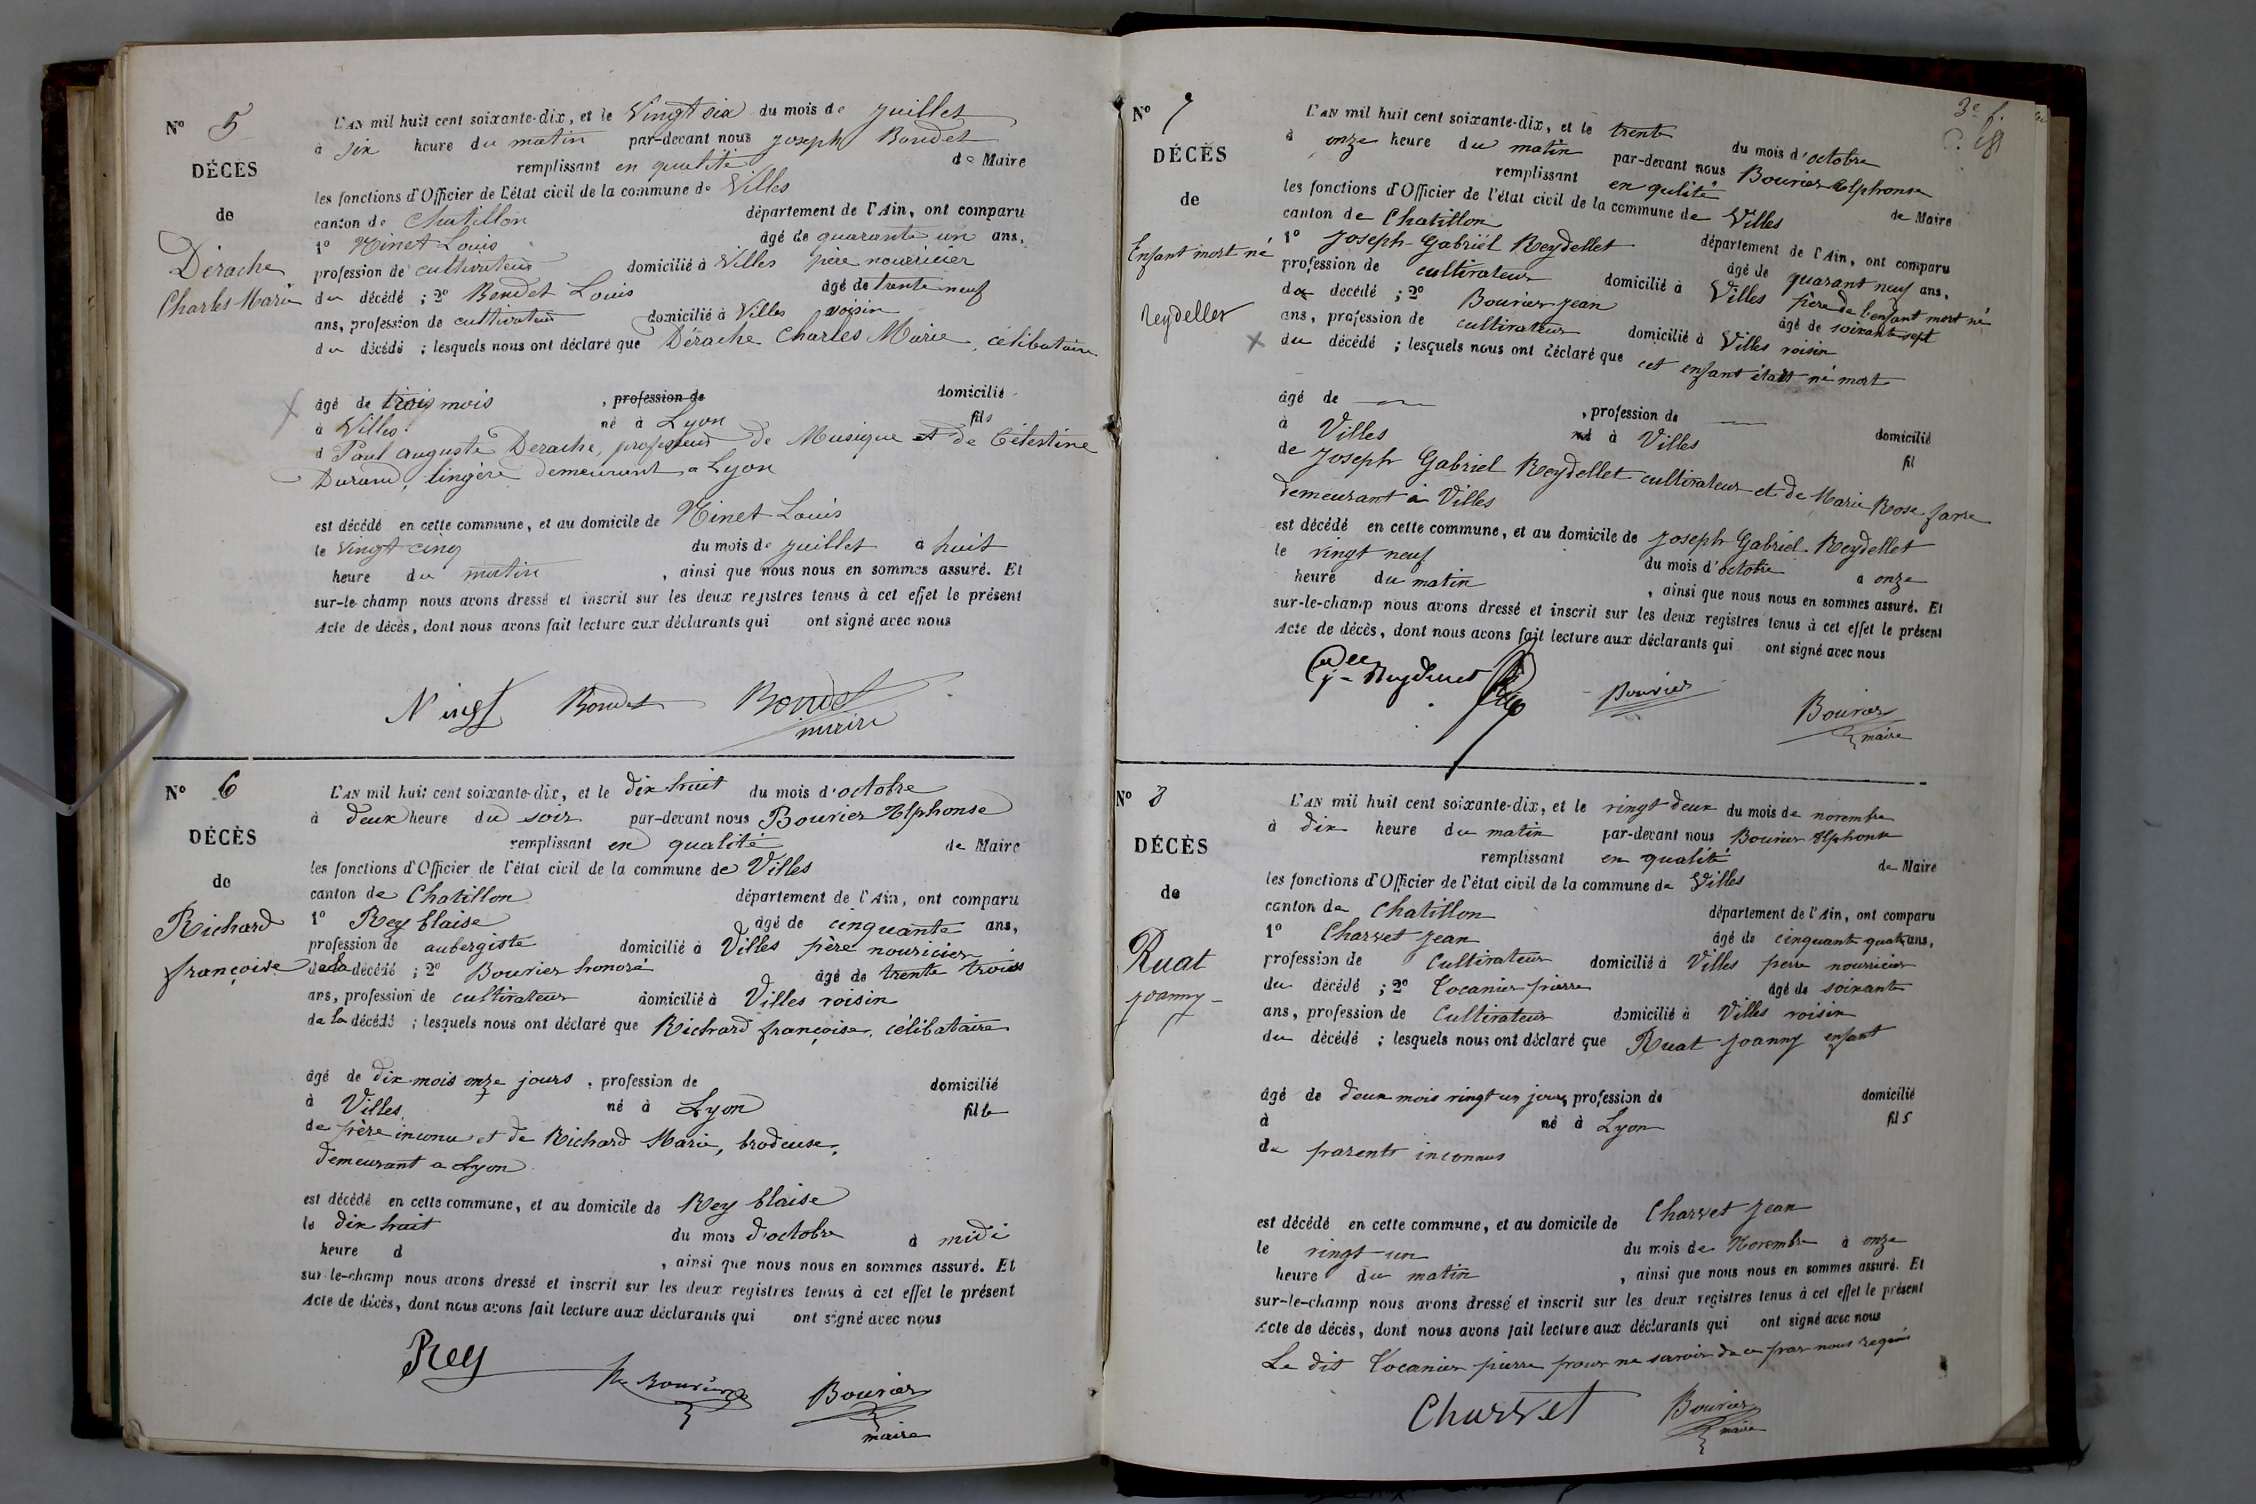 N° 5
DÉCÈS
de
Dérache
Charles Marie
L'AN mil huit cent soixante-dix, et le Vingt six du mois de juillet
à six heure du matin par-devant nous Joseph Bondet
remplissant en qualité de Maire
les fonctions d'Officier de l'état civil de la commune de Villes
canton de Chatillon département de l'Ain, ont comparu
1° Ninet Louis âgé de quarante un ans,
profession de cultivateur domicilié à Villes père nourricier
du décédé ; 2° Bondet Louis âgé de trente neuf
ans, profession de cultivateur domicilié à Villes voisin
du décédé ; lesquels nous ont déclaré que Dérache Charles Marie, célibataire
âgé de trois mois , profession de domicilié
à Villes né à Lyon fils
d Paul auguste Derache, professeur de Musique et de Célestine
Durand, lingère demeurant a Lyon
est décédé en cette commune, et au domicile de Ninet Louis
le vingt cinq du mois de juillet à huit
heure du matin , ainsi que nous nous en sommes assuré. Et
sur-le-champ nous avons dressé et inscrit sur les deux registres tenus à cet effet le présent
Acte de décès, dont nous avons fait lecture aux déclarants qui ont signé avec nous
Ninet Bondet Bondet
maire
N° 6
DÉCÈS
de
Richard
françoise
L'AN mil huit cent soixante-dix, et le dix huit du mois d'octobre
à deux heure du soir par-devant nous Bouvier Alphonse
remplissant en qualité de Maire
les fonctions d'Officier de l'état civil de la commune de Villes
canton de Chatillon département de l'Ain, ont comparu
1° Rey blaise âgé de cinquante ans,
profession de aubergiste domicilié à Villes père nouricier
de la décédé ; 2° Bouvier honoré âgé de trente trois
ans, profession de cultivateur domicilié à Villes voisin
de la décédé ; lesquels nous ont déclaré que Richard françoise, célibataire
âgé de dix mois onze jours , profession de domicilié
à Villes né à Lyon fille
de père inconu et de Richard Marie, brodeuse,
demeurant a Lyon
est décédé en cette commune, et au domicile de Rey blaise
le dix huit du mois d'octobre à midi
heure d , ainsi que nous nous en sommes assuré. Et
sur-le-champ nous avons dressé et inscrit sur les deux registres tenus à cet effet le présent
Acte de décès, dont nous avons fait lecture aux déclarants qui ont signé avec nous
Rey Bouvier Bouvier
maire
3e f.
N° 7
DÉCÈS
de
Enfant mort né
reydellet
L'AN mil huit cent soixante-dix, et le trente du mois d'octobre
à onze heure du matin par-devant nous Bouvier Alphonse
remplissant en qulité de Maire
les fonctions d'Officier de l'état civil de la commune de Villes
canton de Chatillon département de l'Ain, ont comparu
1° Joseph Gabriel Reydellet âgé de quarant neuf ans,
profession de cultivateur domicilié à Villes père de l'enfant mort né
du décédé ; 2° Bouvier jean âgé de soixante sept
ans, profession de cultivateur domicilié à Villes voisin
du décédé ; lesquels nous ont déclaré que cet enfant était né mort
âgé de , profession de domicilié
à Villes né à Villes fil
de Joseph Gabriel Reydellet cultivateur et de Marie Rose favre
demeurant à Villes
est décédé en cette commune, et au domicile de Joseph Gabriel Reydellet
le vingt neuf du mois d'octobre à onze
heure du matin , ainsi que nous nous en sommes assuré. Et
sur-le-champ nous avons dressé et inscrit sur les deux registres tenus à cet effet le présent
Acte de décès, dont nous avons fait lecture aux déclarants qui ont signé avec nous
Bouvier Bouvier
maire
N° 8
DÉCÈS
de
Ruat
joanny
L'AN mil huit cent soixante-dix, et le vingt deux du mois de novembre
à dix heure du matin par-devant nous Bouvier Alphonse
remplissant en qualité de Maire
les fonctions d'Officier de l'état civil de la commune de Villes
canton de Chatillon département de l'Ain, ont comparu
1° Charvet jean âgé de cinquante quatre ans,
profession de Cultivateur domicilié à Villes perre nourricier
du décédé ; 2° Tocanier pierre âgé de soixante
ans, profession de Cultivateur domicilié à Villes voisin
du décédé ; lesquels nous ont déclaré que Ruat joanny enfant
âgé de deux mois vingt un jours, profession de domicilié
à né à Lyon fils
de parents inconnus
est décédé en cette commune, et au domicile de Charvet jean
le vingt un du mois de Novembre à onze
heure du matin , ainsi que nous nous en sommes assuré. Et
sur-le-champ nous avons dressé et inscrit sur les deux registres tenus à cet effet le présent
Acte de décès, dont nous avons fait lecture aux déclarants qui ont signé avec nous
Le dit Tocanier pierre pour ne savoir de ce par nous requis
Charvet Bouvier
maire